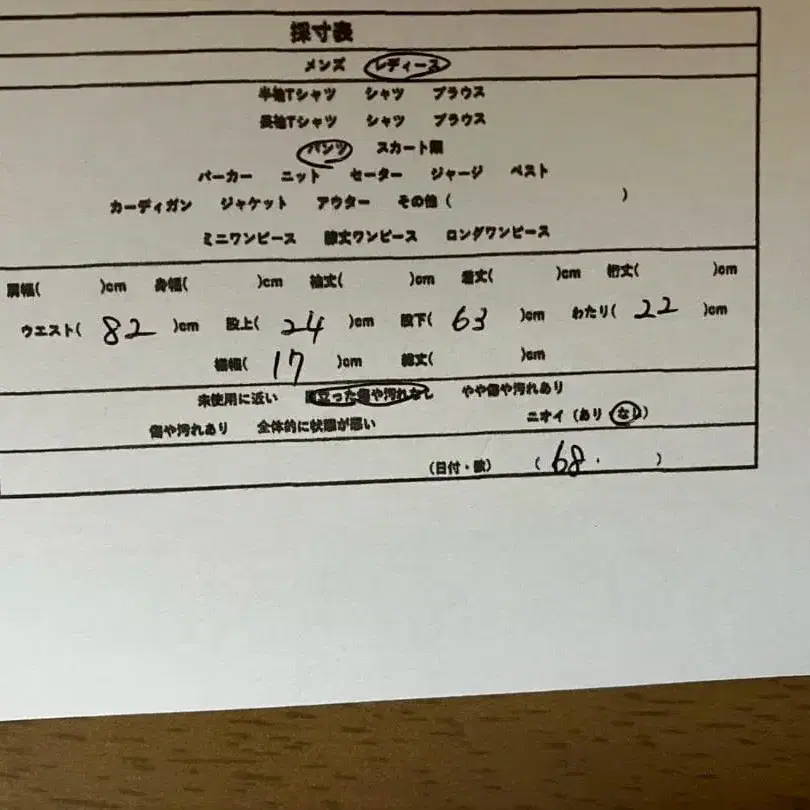 採寸表
メンズ レディース
半袖Tシャツ シャツ ブラウス
長袖Tシャツ シャツ ブラウス
パンツ スカート類
パーカー ニット セーター ジャージ ベスト
カーディガン ジャケット アウター その他( )
ミニワンピース 膝丈ワンピース ロングワンピース
肩幅( )cm 身幅( )cm 袖丈( )cm 着丈( )cm 裄丈( )cm
ウエスト( 82 )cm 股上( 24 )cm 股下( 63 )cm わたり( 22 )cm
裾幅( 17 )cm 総丈( )cm
未使用に近い 目立った傷や汚れなし やや傷や汚れあり
傷や汚れあり 全体的に状態が悪い ニオイ(あり なし)
(日付・数) ( 68. )